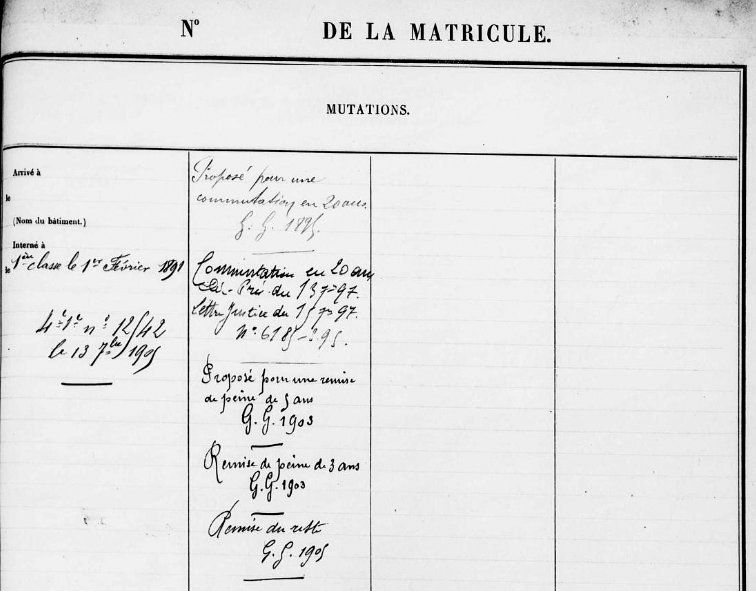 N° DE LA MATRICULE.
MUTATIONS.
Arrivé à
le
(Nom du bâtiment.)
Interné à
le 1ère classe le 1er Février 1891
4e 1e n° 12/42
le 13 7bre 1905
Proposé pour une
commutation en 20 ans.
G. G. 1895.
Commutation en 20 ans
Déc. Prés. du 13 7re 97.
Lettre Justice du 15 7re 97.
N° 6185
Proposé pour une remise
de peine de 5 ans
G. G. 1903
Remise de peine de 3 ans
G. G. 1903
Remise du reste
G. G. 1905